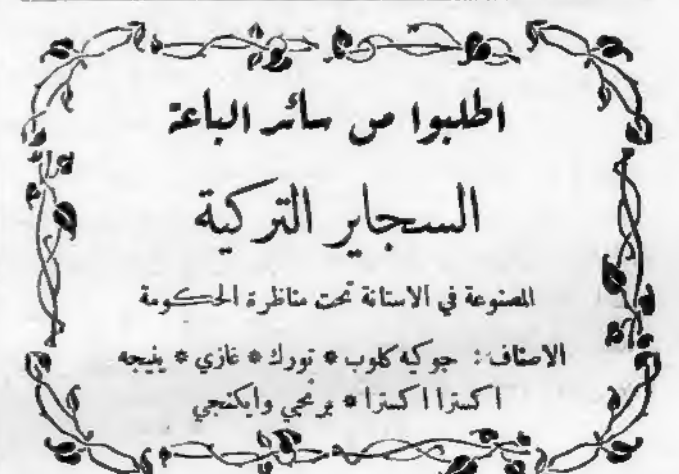 اطلبوا من سائر الباعة
السجاير التركية
المصنوعة في الاستانة تحت مناظرة الحكومة
الاصناف: جوكيه كلوب * تورك * غازي * ينيجه
اكسترا اكسترا * برنجي وايكنجي